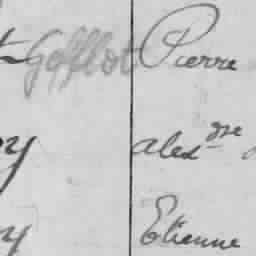 Goffloot Pierre
alexdre
Etienne